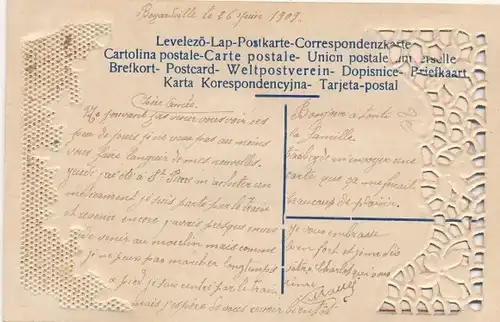 Boyardville le 26 juin 1909.
Levelező-Lap-Postkarte-Correspondenzkarte
Cartolina postale-Carte postale- Union postale universelle
Brefkort- Postcard- Weltpostverein- Dopisnice- Briefkaart
Karta Korespondencyjna- Tarjeta-postal
Chère Aimée.
Ne pouvant pas vous voir ces
peu de jours je ne veux pas au moins
vous faire languir de mes nouvelles.
été à St Pierre m'acheter un
médicament je suis partie par le train
et encore j'avais presque envie
de venir au moulin mais comme
je ne peux pas marcher longtemps
à pied je suis rentré par le train
mais j'espère vous revoir bientôt
Bonjour à toute
la famille
m'envoyer une
carte que ça me ferait
beaucoup de plaisir.
je vous embrasse
bien fort et
votre